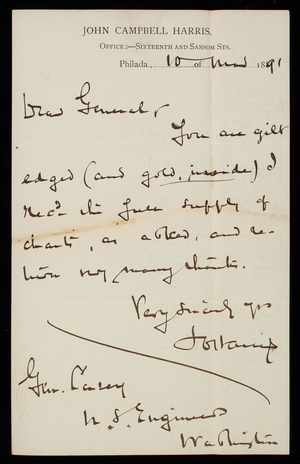 JOHN CAMPBELL HARRIS.
OFFICE:—SIXTEENTH AND SANSOM STS.
Philada., 10 of Mar 1891
Dear General,
You are gilt
edged (and gold, inside) I
rec'd the full supply of
charts, as asked, and re-
turn very many thanks.
Very sincerely yrs
JCHarris
Gen. Casey
U. S. Engineers
Washington